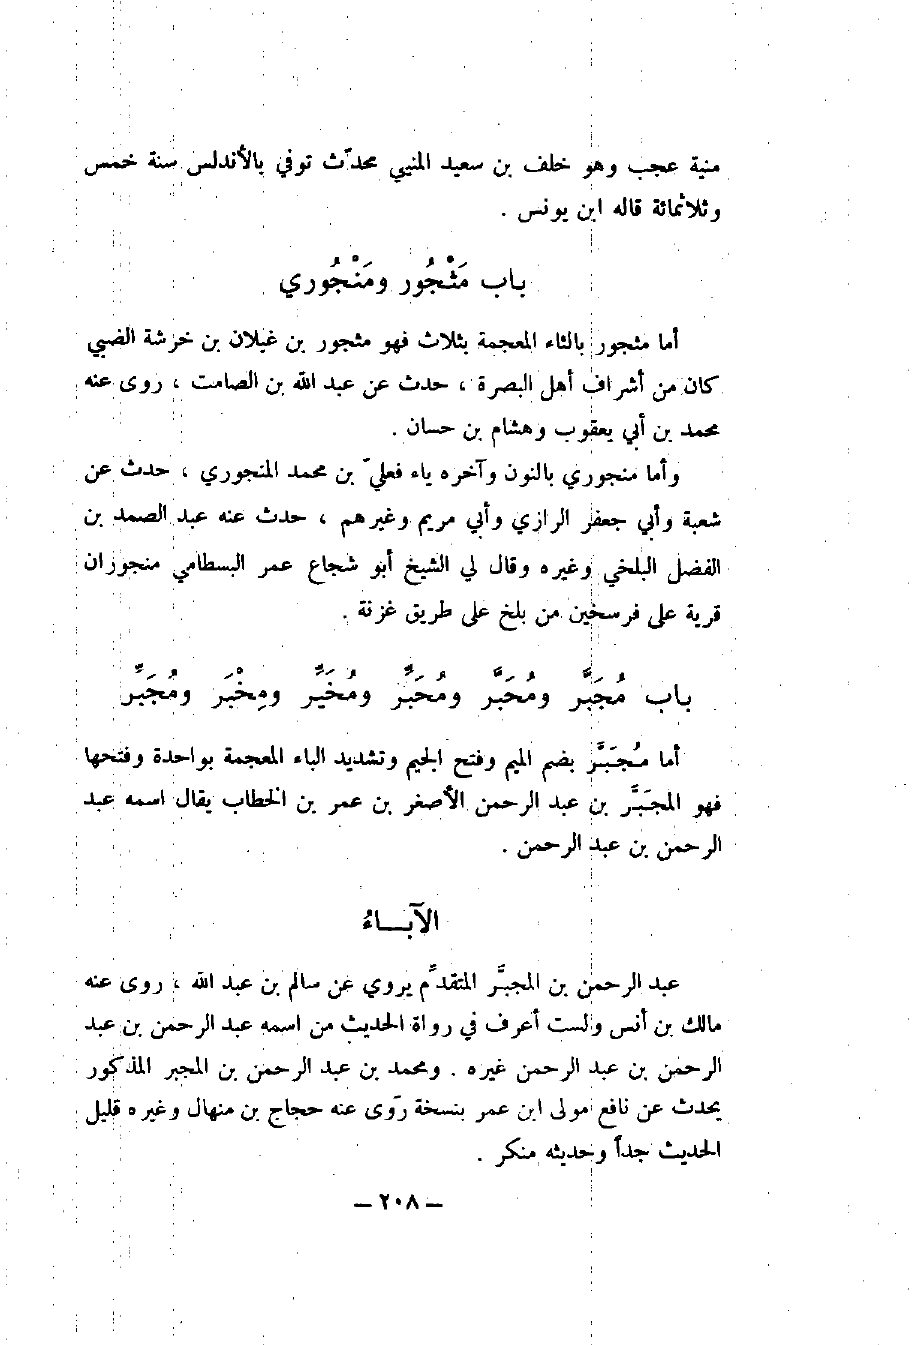 منية عجب وهو خلف بن سعيد المنيي محدّث توفي بالأندلس سنة خمس
وثلاثمائة قاله ابن يونس .
باب مَثْجُور ومَنْجُوري
أما مثجور بالثاء المعجمة بثلاث فهو مثجور بن غيلان بن خرشة الضبي
كان من أشراف أهل البصرة ، حدث عن عبد الله بن الصامت ، روى عنه
محمد بن أبي يعقوب وهشام بن حسان .
وأما منجوري بالنون وآخره ياء فعليّ بن محمد المنجوري ، حدث عن
شعبة وأبي جعفر الرازي وأبي مريم وغيرهم ، حدث عنه عبد الصمد بن
الفضل البلخي وغيره وقال لي الشيخ أبو شجاع عمر البسطامي منجوزان
قرية على فرسخين من بلخ على طريق غزنة .
باب مُجَبَّر ومُحَبَّر ومُحَبِّر ومُخَيِّر ومِخْبَر ومُجَبِّر
أما مُجَبَّر بضم الميم وفتح الجيم وتشديد الباء المعجمة بواحدة وفتحها
فهو المجَبَّر بن عبد الرحمن الأصغر بن عمر بن الخطاب يقال اسمه عبد
الرحمن بن عبد الرحمن .
الآبـاءُ
عبد الرحمن بن المجبَّر المتقدِّم يروي عن سالم بن عبد الله ، روى عنه
مالك بن أنس ولست أعرف في رواة الحديث من اسمه عبد الرحمن بن عبد
الرحمن بن عبد الرحمن غيره . ومحمد بن عبد الرحمن بن المجبر المذكور
يحدث عن نافع مولى ابن عمر بنسخة روى عنه حجاج بن منهال وغيره قليل
الحديث جداً وحديثه منكر .
– ٢٠٨ –